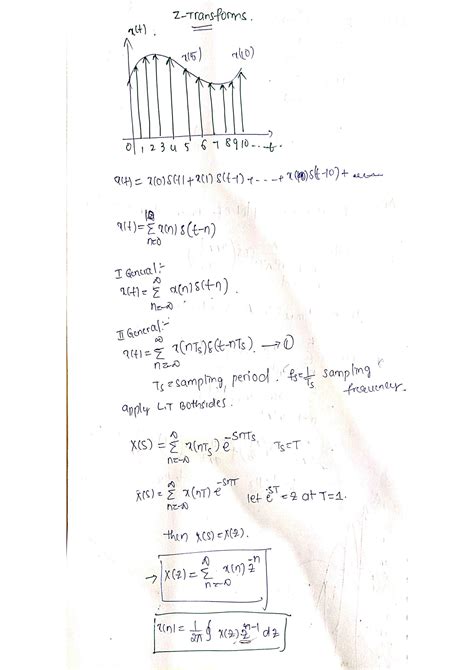 Z-Transforms.
x(t).
x(5) x(10)
0 1 2 3 4 5 6 7 8 9 10 --- t.
x(t) = x(0)δ(t) + x(1) δ(t-1) + --- + x(10)δ(t-10) +
x(t) = Σ x(n) δ(t-n)
n=0
I General:-
x(t) = Σ x(n) δ(t-n).
n=-∞
II General:-
x(t) = Σ x(nTs) δ(t-nTs). → ①
n=-∞
Ts = sampling period. fs = 1/Ts sampling frequency.
apply L.T Bothsides.
X(S) = Σ x(nTs) e^-SnTs Ts = T
n=-∞
X(S) = Σ x(nT) e^-SnT let e^ST = Z at T=1.
n=-∞
then X(S) = X(Z).
→ X(Z) = Σ x(n) Z^-n
n=-∞
x(n) = 1/2π ∮ X(Z) Z^n-1 dz